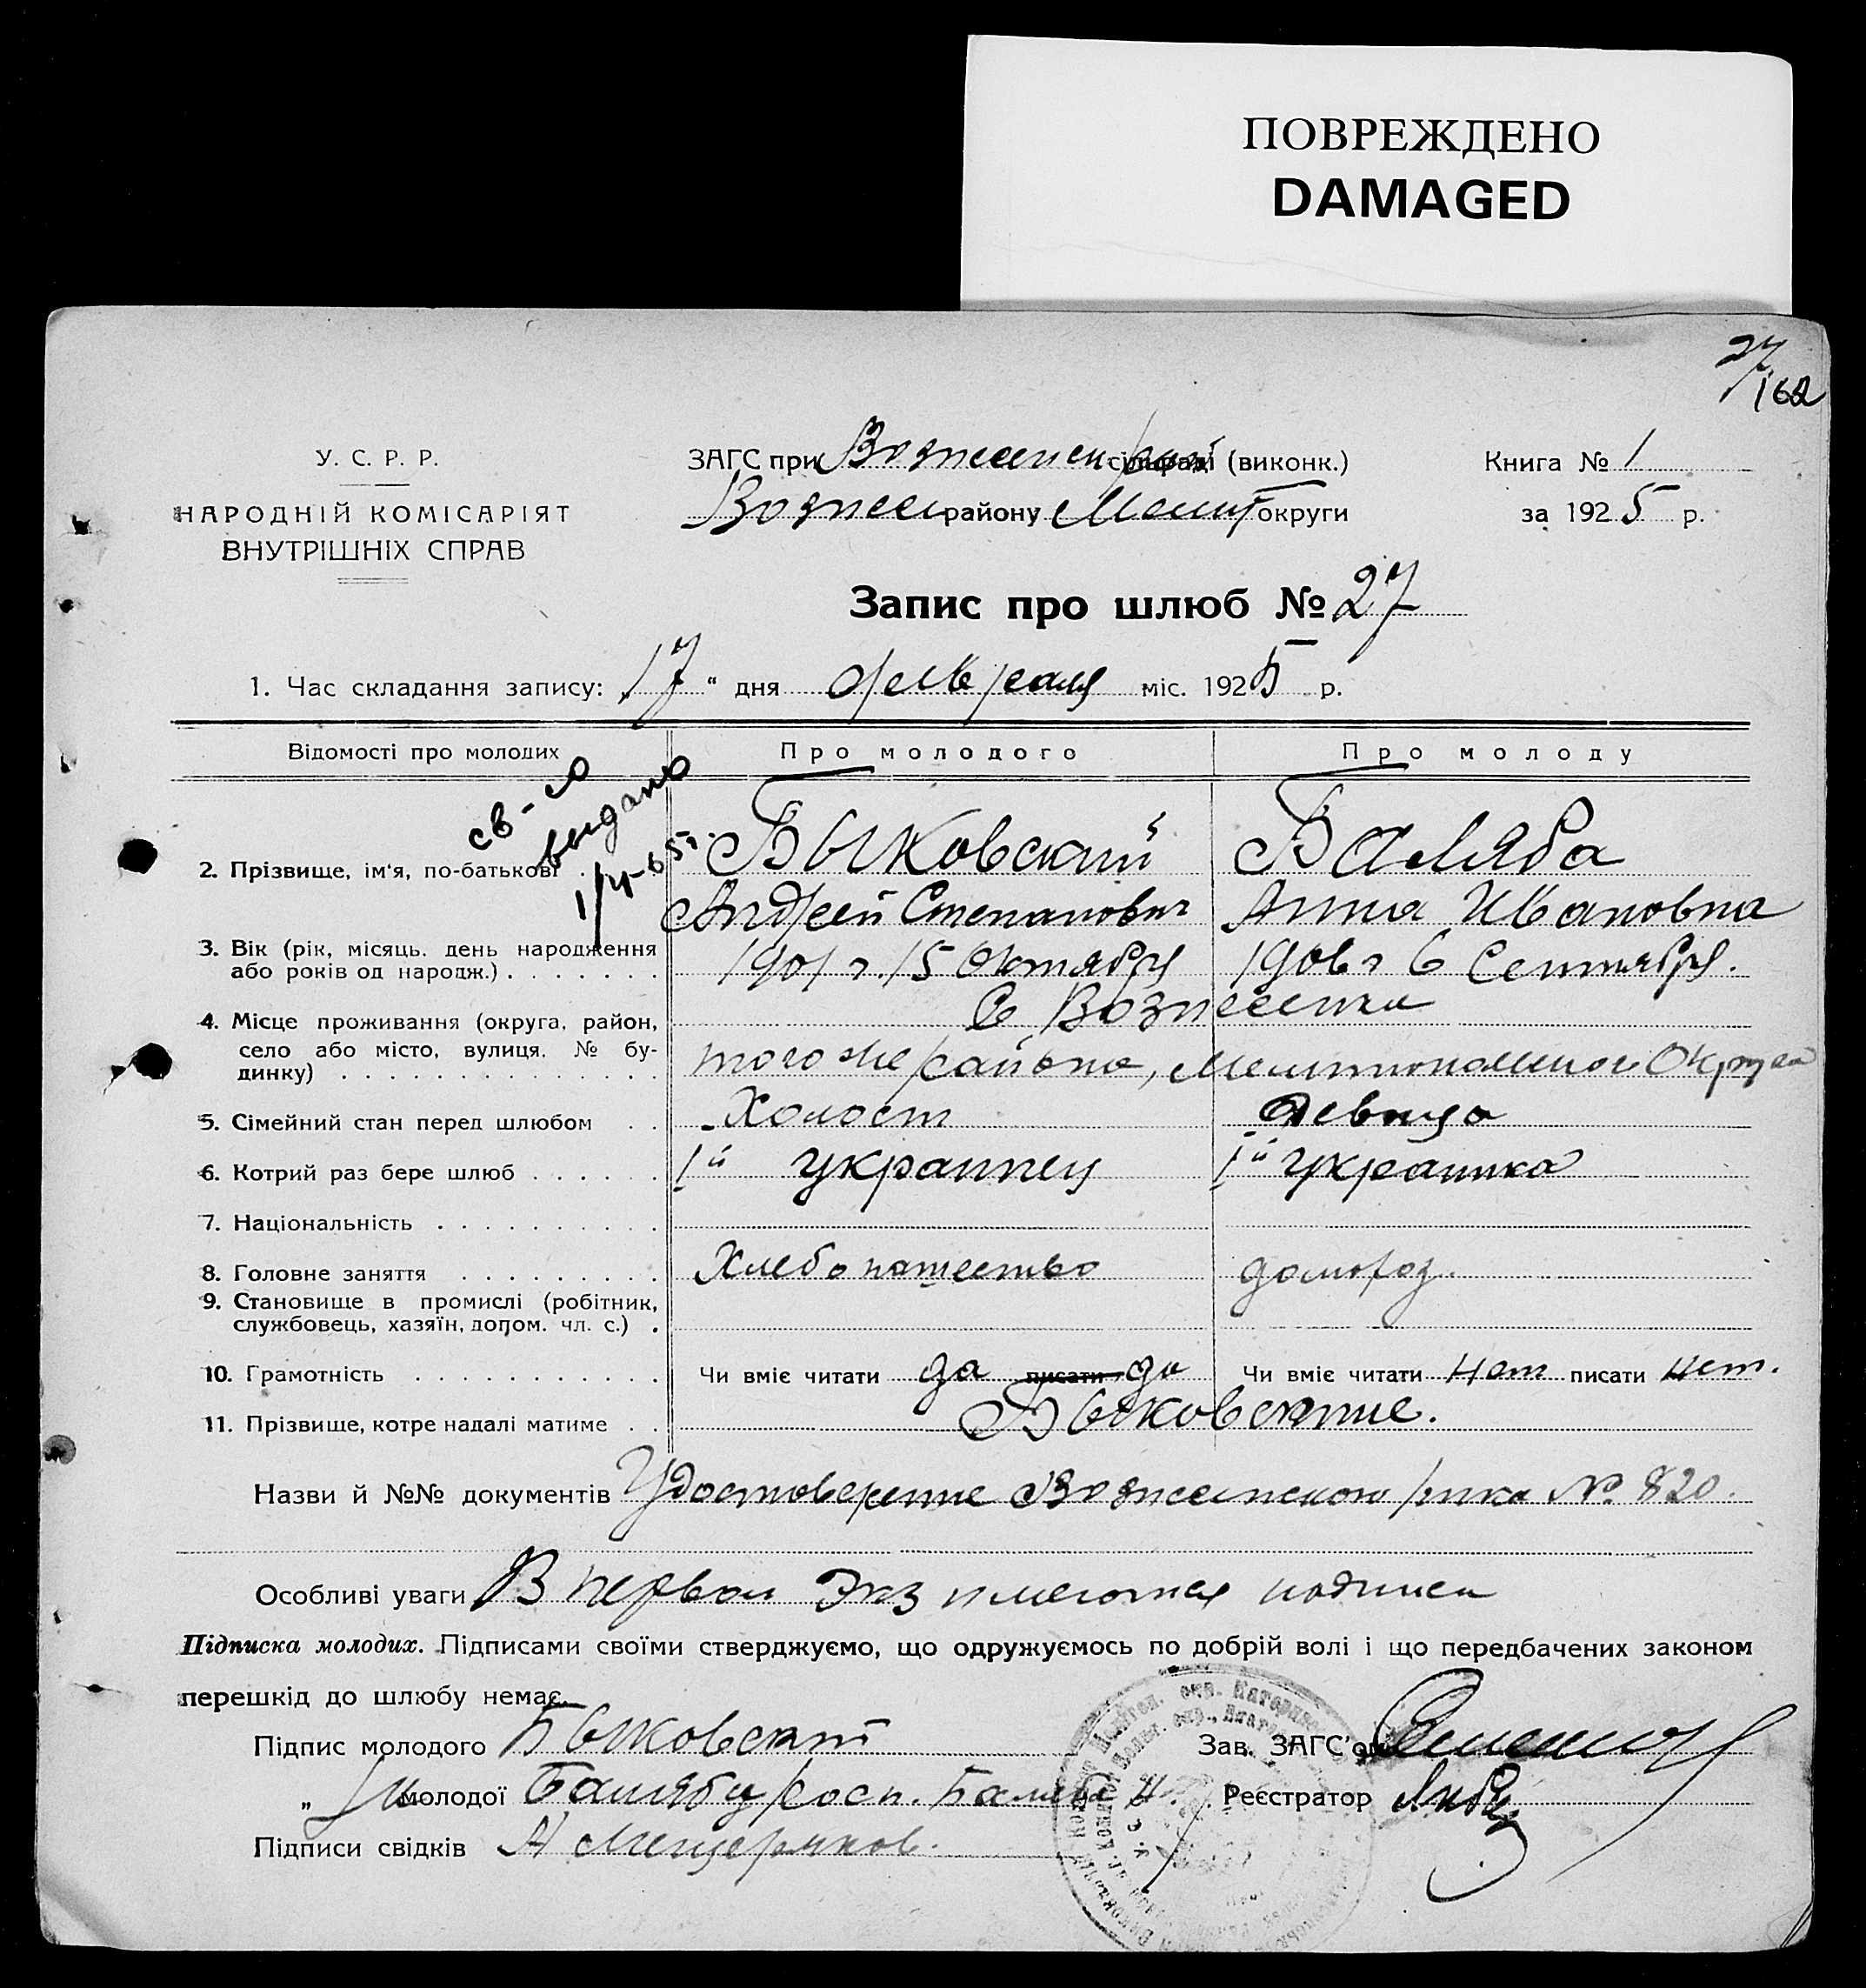 ПОВРЕЖДЕНО
DAMAGED
27
162
У. С. Р. Р.
НАРОДНІЙ КОМІСАРІЯТ
ВНУТРІШНІХ СПРАВ
ЗАГС при Вознесенск. (виконк.)
Вознесен району Мелит округи
Книга № 1
за 1925 р.
Запис про шлюб № 27
1. Час складання запису: „17“ дня февраля міс. 1925 р.
Відомості про молодих
Про молодого
Про молоду
св-во
выдано
1/4-65 г.
2. Прізвище, ім'я, по-батькові
Быковский
Андрей Степанович
Баляба
Анна Ивановна
3. Вік (рік, місяць, день народження
або років од народж.)
1901 г. 15 Октября
1906 г 6 Сентября.
4. Місце проживання (округа, район,
село або місто, вулиця, № бу-
динку)
С Вознесенка
того же района, Мелитопольского Округа
5. Сімейний стан перед шлюбом
Холост
Девица
6. Котрий раз бере шлюб
1й украинец
1й украинка
7. Національність
8. Головне заняття
Хлебопашество
домохоз.
9. Становище в промислі (робітник,
службовець, хазяїн, допом. чл. с.)
10. Грамотність
Чи вміє читати да писати да
Чи вміє читати нет писати нет.
11. Прізвище, котре надалі матиме
Быковские.
Назви й №№ документів Удостоверение Вознесенского рика № 820.
Особливі уваги В первом экз имеются подписи
Підписка молодих. Підписами своїми стверджуємо, що одружуємось по добрій волі і що передбачених законом
перешкід до шлюбу немає.
Підпис молодого Быковский
Зав. ЗАГС'ом
„ молодої Балябу росп. Баляба
Реєстратор
Підписи свідків А Мещеряков.